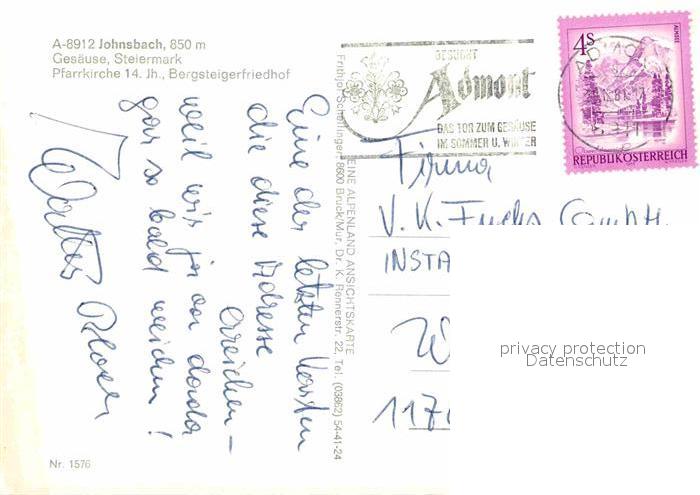 A-8912 Johnsbach, 850 m
Gesäuse, Steiermark
Pfarrkirche 14. Jh., Bergsteigerfriedhof
Eine der letzten Karten
die diese Adresse
erreichen-
weil wir ja von
gar so bald weichen!
Walter
EINE ALPENLAND ANSICHTSKARTE
Frithjof Scherlinger, 8600 Bruck/Mur, Dr. K. Rennerstr. 22, Tel. (03862) 54-41-24
BESUCHT
Admont
DAS TOR ZUM GESÄUSE
IM SOMMER U. WINTER
4S
ALMSEE
REPUBLIK ÖSTERREICH
Firma
V. K. Fuchs GmbH.
INSTA
1170
privacy protection
Datenschutz
Nr. 1576